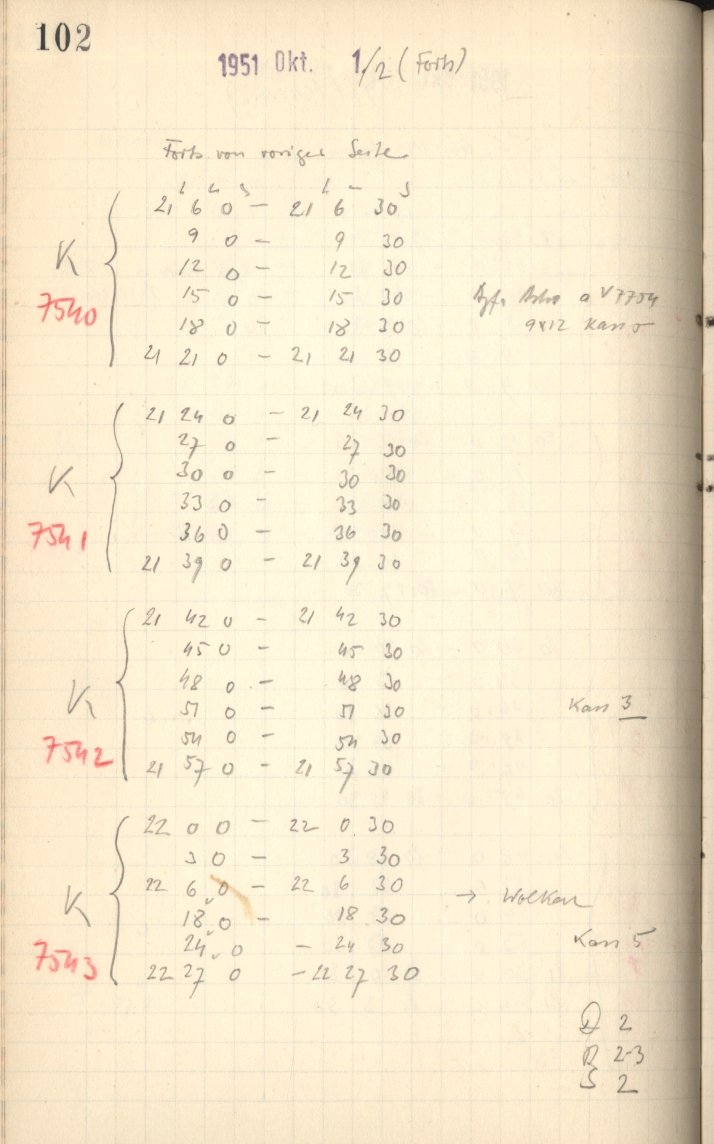 102
1951 Okt. 1./2 (Forts)
Forts von voriger Seite
h m s h m s
21 6 0 – 21 6 30
9 0 – 9 30
K 12 0 – 12 30
7540 15 0 – 15 30 a V 7754
18 0 – 18 30 9x12 Kass 5
21 21 0 – 21 21 30
21 24 0 – 21 24 30
27 0 – 27 30
K 30 0 – 30 30
7541 33 0 – 33 30
36 0 – 36 30
21 39 0 – 21 39 30
21 42 0 – 21 42 30
45 0 – 45 30
K 48 0 – 48 30
7542 51 0 – 51 30 Kass 3
54 0 – 54 30
21 57 0 – 21 57 30
22 0 0 – 22 0 30
3 0 – 3 30
22 6 0 – 22 6 30
K 18 0 – 18 30 → Wolken
7543 24 0 – 24 30 Kass 5
22 27 0 – 22 27 30
D 2
R 2-3
S 2